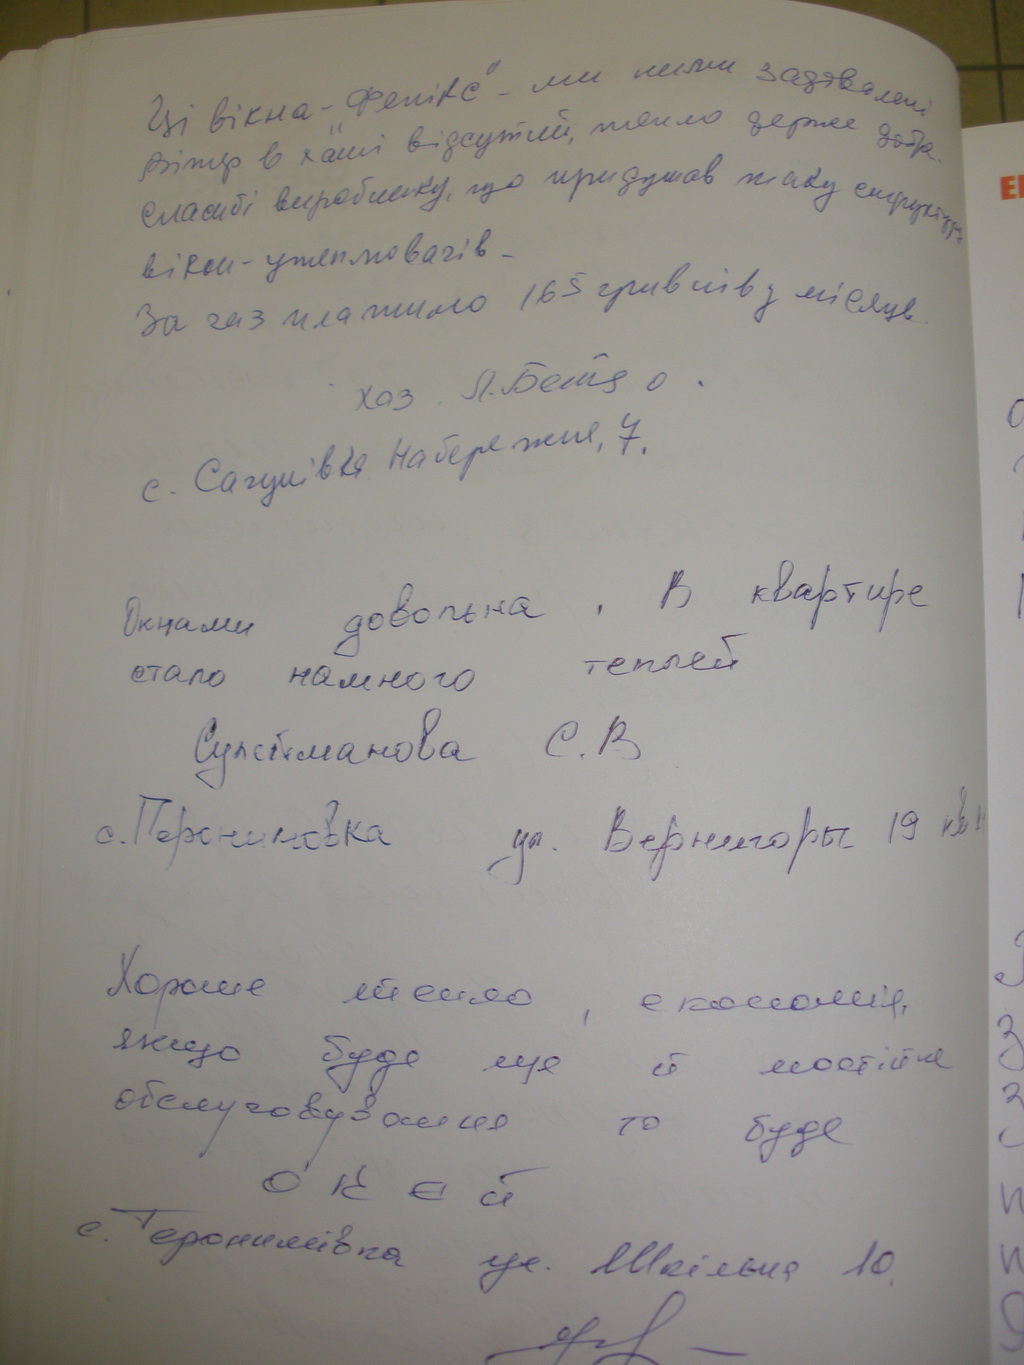 Ці вікна - Фенікс" - ми ними задоволені
вітер в хаті відсутній, тепло держе добре.
Спасибі виробнику, що придумав таку структуру
вікон-утеплювачів -
За газ платило 165 гривнів у місяць.
хаз. Л.
с. Сагунівка Набережна, 7.
Окнами довольна, В квартире
стало намного теплей
Сулейманова С.В
с. Геронимовка ул. Вернигоры 19 кв
Хороше тепло, економія,
якщо буде ще й постійне
обслуговування то буде
О К Є Й
с. Геронимівка ул. Шкільна 10.